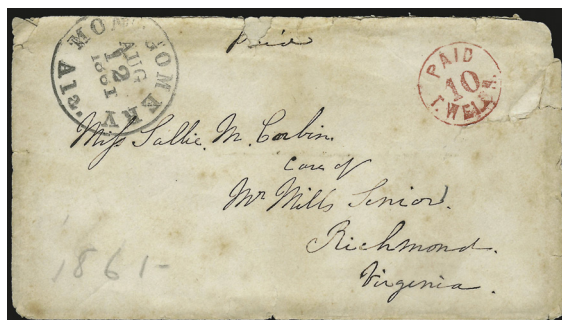 MONTGOMERY ALA.
AUG
12
1861
Paid
PAID
10
T. WELSH.
Miss Sallie. M. Corbin.
Care of
Mr Mills Senior.
Richmond.
Virginia.
1861-